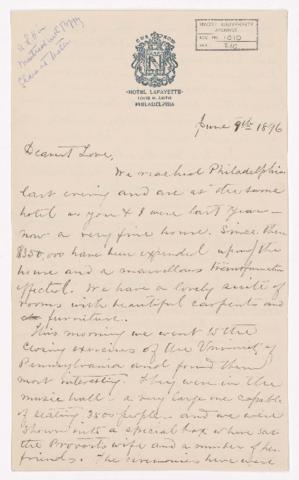 McGILL UNIVERSITY
ARCHIVES
ACC. NO. 1010
REF.
EUROPEAN
HOTEL LAFAYETTE
PHILADELPHIA
June 9th 1896
Dearest Love,
We reached Philadelphia
last evening and are at the same
hotel as you & I were last year—
now a very fine house. Since then
$350,000 have been expended upon the
house and a marvellous transformation
effected. We have a lovely suite of
rooms with beautiful carpets and
furniture.
This morning we went to the
closing exercises of the University of
Pennsylvania and found them
most interesting. They were in the
music hall - a very large one capable
of seating 3500 people - and we were
shown into a special box where sat
the Provost's wife and a number of her
friends. The ceremonies here were